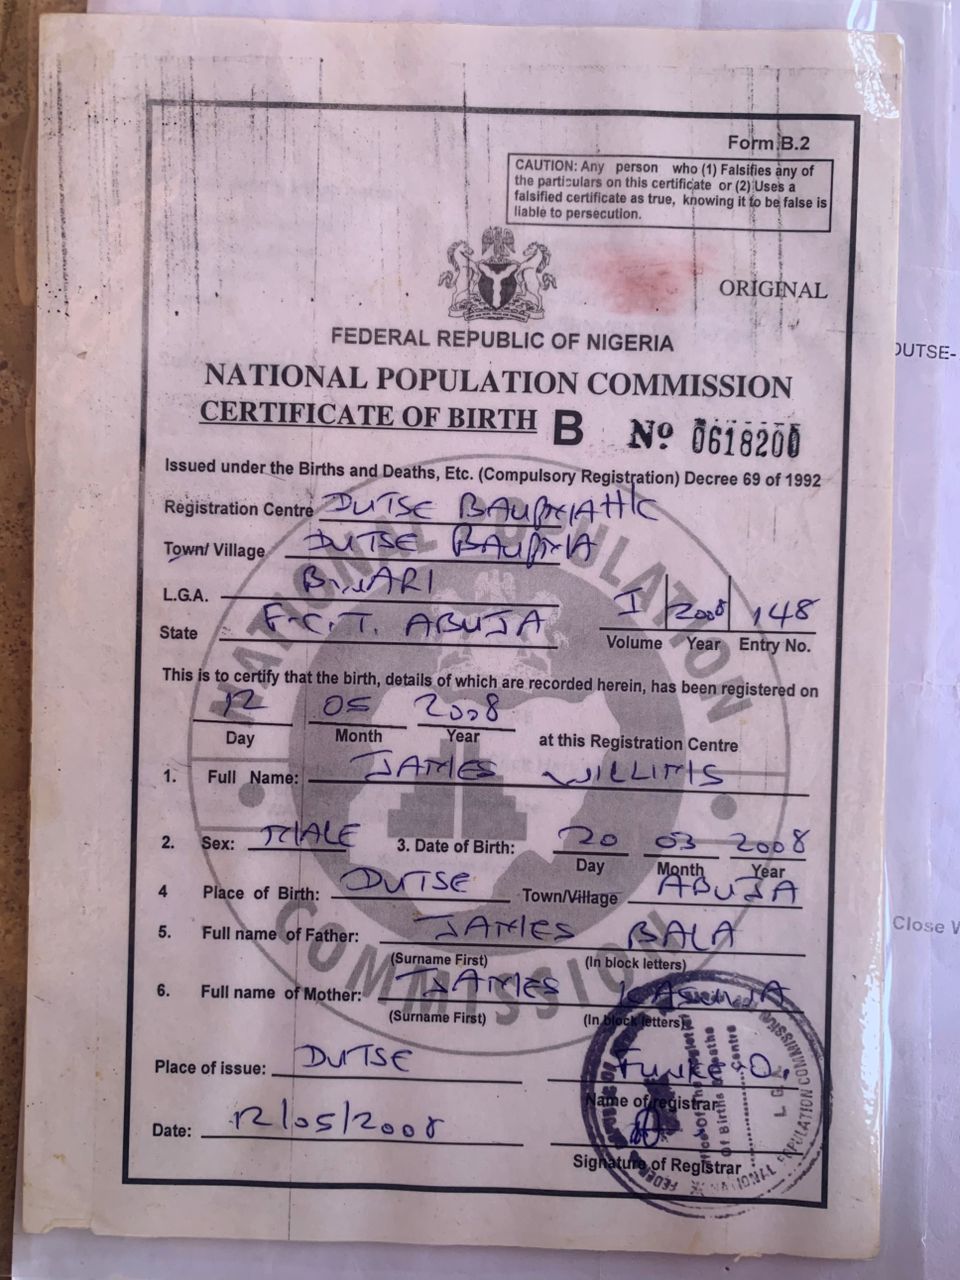 Form B.2
CAUTION: Any person who (1) Falsifies any of
the particulars on this certificate or (2) Uses a
falsified certificate as true, knowing it to be false is
liable to persecution.
ORIGINAL
FEDERAL REPUBLIC OF NIGERIA
NATIONAL POPULATION COMMISSION
CERTIFICATE OF BIRTH B No 0618200
DUTSE-
Issued under the Births and Deaths, Etc. (Compulsory Registration) Decree 69 of 1992
Registration Centre DUTSE
Town/Village DUTSE
L.G.A. BWARI
State F.C.T. ABUJA
I 2008 148
Volume Year Entry No.
This is to certify that the birth, details of which are recorded herein, has been registered on
12 05 2008
Day Month Year at this Registration Centre
1. Full Name: JAMES
2. Sex: MALE 3. Date of Birth: 20 03 2008
Day Month Year
4 Place of Birth: DUTSE Town/Village ABUJA
5. Full name of Father: JAMES BALA
(Surname First) (In block letters)
Close
6. Full name of Mother: JAMES
(Surname First) (In block letters)
Place of issue: DUTSE
Name of registrar
Date: 12/05/2008
Signature of Registrar
NATIONAL POPULATION
COMMISSION
Of Births
Centre
L.G.A.
POPULATION COMMISSION